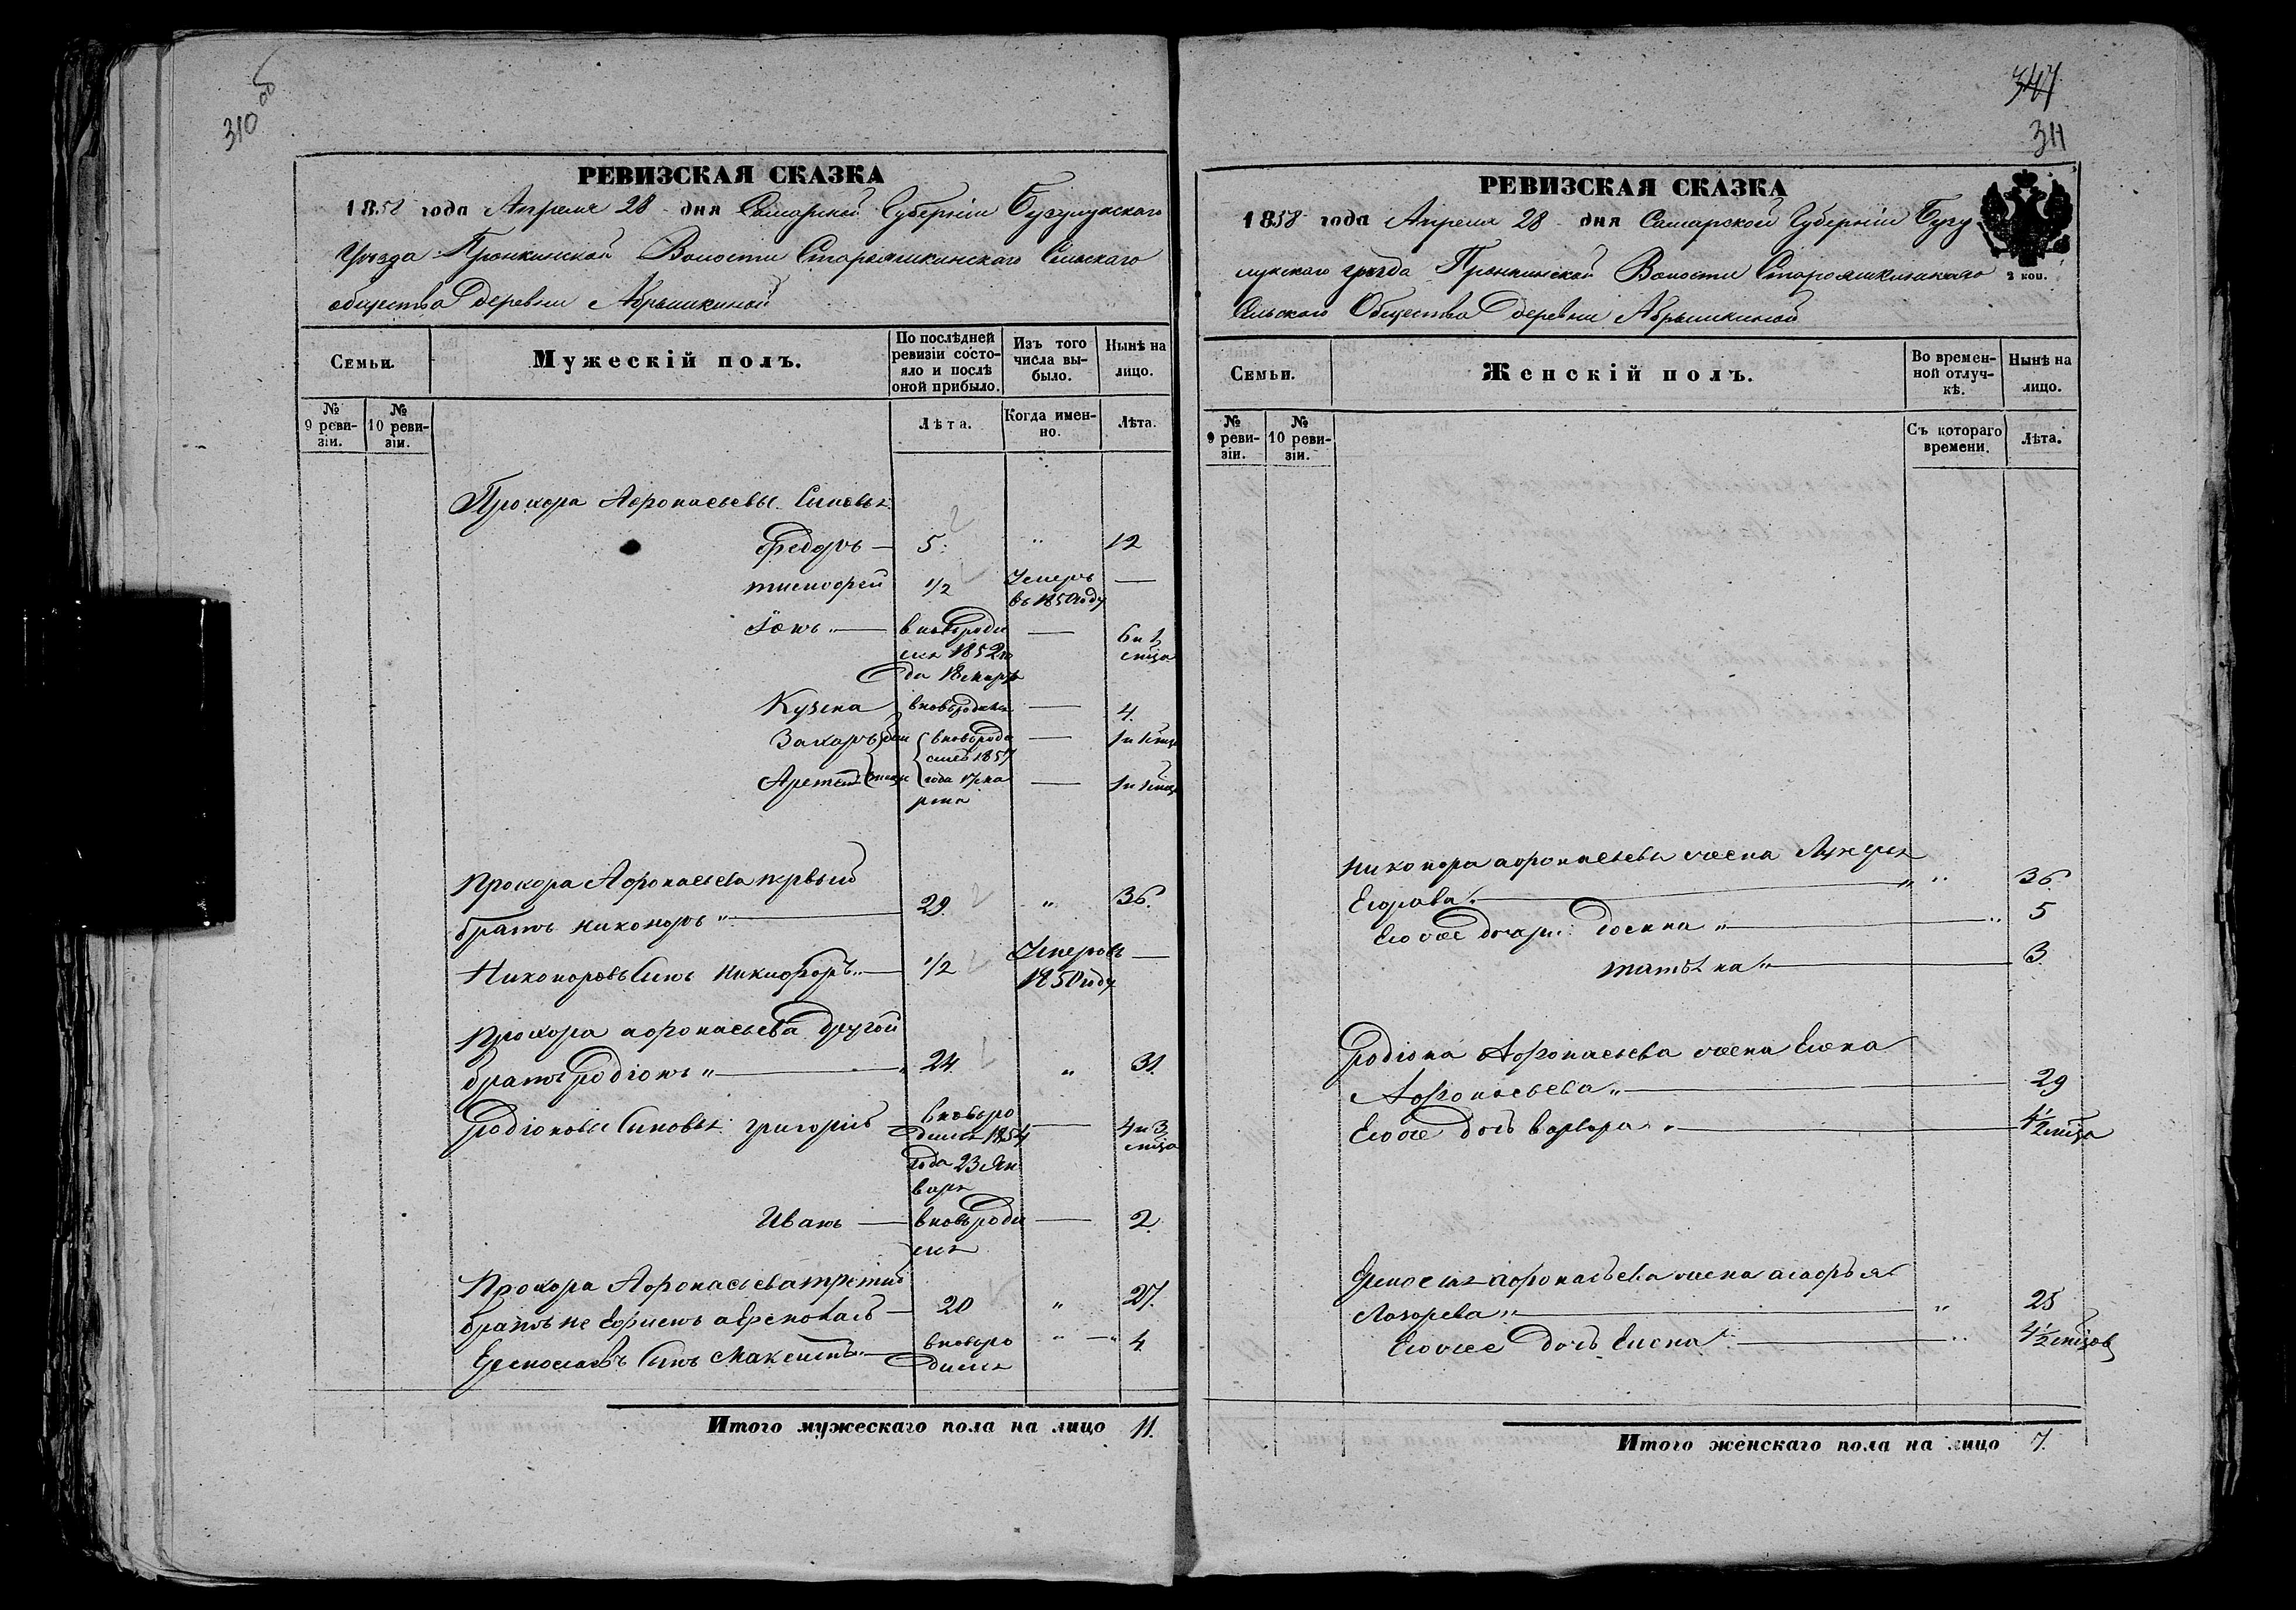 310 об
РЕВИЗСКАЯ СКАЗКА
1858 года Апреля 28 дня Самарской Губерніи Бузулукскаго
Уезда Пронкинской Волости Старояшкинскаго Сельскаго
общества Деревни Абрышкиной
Семьи.
Мужескій полъ.
По послѣдней ревизіи состояло и послѣ оной прибыло.
Изъ того числа выбыло.
Нынѣ на лицо.
№ 9 ревизіи.
№ 10 ревизіи.
Лѣта.
Когда именно.
Лѣта.
Прохора Афонасьевы Сыновья
Федоръ — 5 " 12
тимофей 1/2 Умеръ въ 1850 году —
Іонъ — вновь родился 1852 года 18 марта — 6 и 1 мца
Кузма вновь родился — 4.
Захаръ вновь родился 1857 года 17 марта — 1 и 1 мца
Артемій — 1 и 1 мца
Прохора Афонасьева первый
братъ никоноръ " — 29. " 36.
Никоноровъ Сынъ никифоръ " — 1/2 Умеръ въ 1850 году —
Прохора афонасьева другой
братъ Родіонъ " — 24. " 31.
Родіоновы Сыновья григорій — вновь родился 1854 года 23 Января — 4 и 3 мца
Иванъ — вновь родился — 2.
Прохора Афонасьева третий
братъ не Ефимъ а Ермолай — 20 " 27.
Ермолаевъ Сынъ Максимъ " — вновь родился " — " 4.
Итого мужескаго пола на лицо 11.
347
311
РЕВИЗСКАЯ СКАЗКА
1858 года Апреля 28 дня Самарской Губерніи Бузу
лукскаго уезда Пронкинской Волости Старояшкинскаго
2 коп.
Сельскаго Общества Деревни Абрышкиной
Семьи.
Женскій полъ.
Во временной отлучкѣ.
Нынѣ на лицо.
№ 9 ревизіи.
№ 10 ревизіи.
Съ котораго времени.
Лѣта.
никонора афонасьева жена
Егорова " — " 36.
Его же дочери — " 5
— 3.
Родіона Афонасьева жена Елена
Афонасьева " — 29
Его же дочь варвара " — 4 1/2 мца
Ермолая афонасьева жена агафья
Лазорева " — " 25
Его же дочь Елена — " 4 1/2 мцов
Итого женскаго пола на лицо 7.